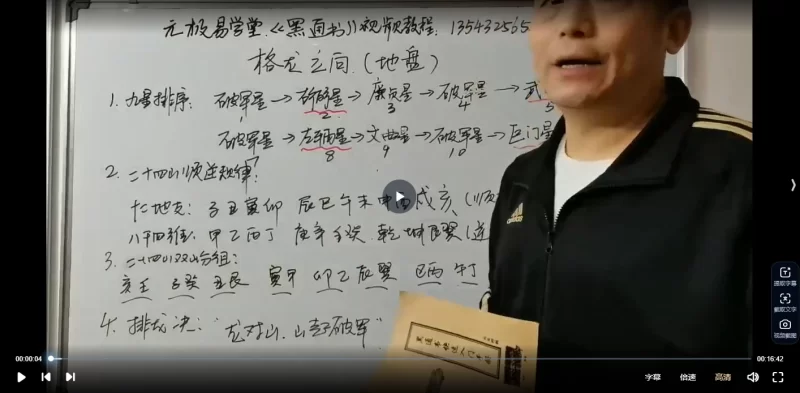 元极易学堂《黑通书》视频教程: 13543256
格龙之向 (地盘)
1. 九星排序: 破军星→右弼星→廉贞星→破军星→武
2 3 4 5
破军星→左辅星→文曲星→破军星→巨门星
8 9 10
2. 二十四山顺逆规律:
十二地支: 子丑寅卯 辰巳午未申酉戌亥 (顺
八干四维: 甲乙丙丁 庚辛壬癸 乾坤艮巽 (逆
3. 二十四山双山分组:
亥壬 子癸 丑艮 寅甲 卯乙 辰巽 巳丙 午丁
4. 排龙诀: "龙对山, 山起破军"
adidas
00:00:04
00:16:42
字幕 倍速 高清
提取字幕
截取文字